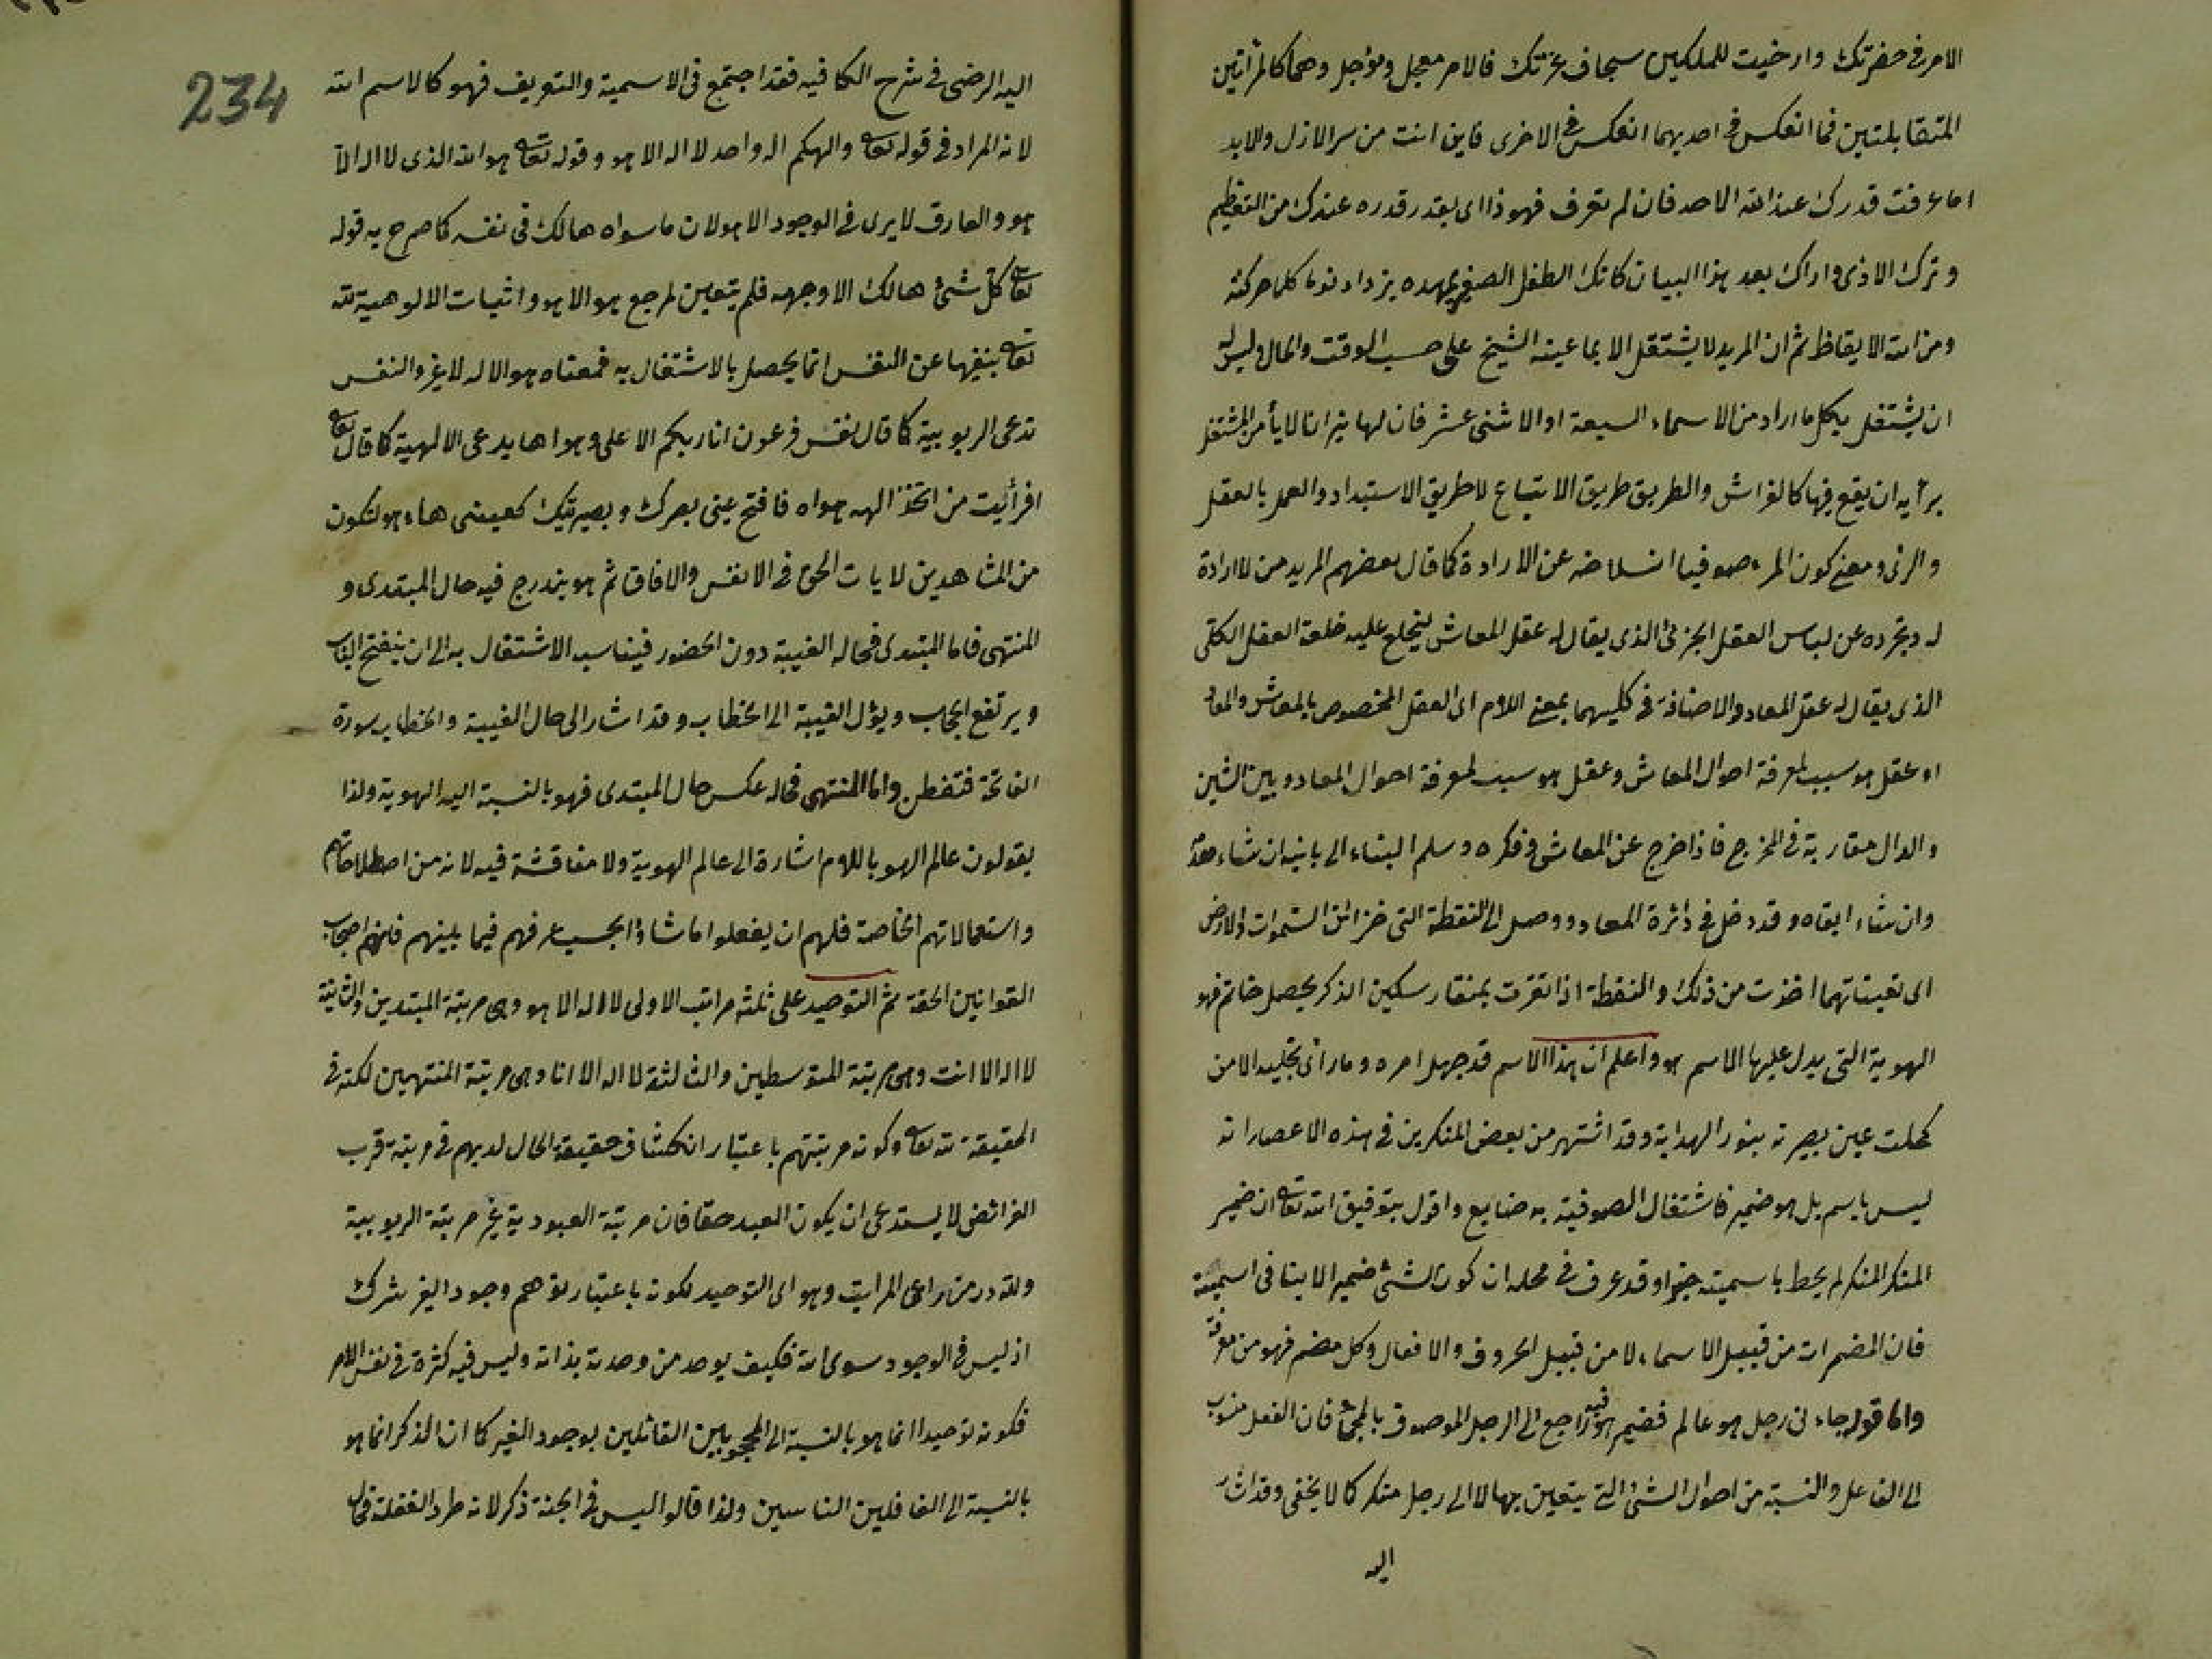 الامر فى حضرتك وارخيت للملكين سجاف عزتك فالامر معجل ومؤجل وهما كالمرآتين
المتقابلتين فما انعكس فى احديهما انعكس فى الاخرى فاين انت من سر الازل والابد
اما عرفت قدرك عند الله الاحد فان لم تعرف فهو ذا اى بقدر قدره عندك من التعظيم
وترك الاذى واراك بعد هذا البيان كانك الطفل الصغير بمهده يزداد نوما كلما حركته
ومن الله الايقاظ ثم ان المريد لا يشتغل الا بما عينه الشيخ على حسب الوقت والحال وليس له
ان يشتغل بكل ما اراد من الاسماء السبعة او الاثنى عشر فان لها نيرانا لا يأمن المشتغل
برأيه ان يقع فيها كالفراش والطريق طريق الاتباع لا طريق الاستبداد والعمل بالعقل
والرأى ومعنى كون المرء صوفيا انسلاخه عن الارادة كما قال بعضهم المريد من لا ارادة
له وتجرده عن لباس العقل الجزئى الذى يقال له عقل المعاش ليخلع عليه خلعة العقل الكلى
الذى يقال له عقل المعاد والاضافة فى كليهما بمعنى اللام اى العقل المخصوص بالمعاش والمعاد
او عقل هو سبب لمعرفة احوال المعاش وعقل هو سبب لمعرفة احوال المعاد وبين الشين
والدال مقاربة فى المخرج فاذا خرج عن المعاش وفكره وسلم البناء الى بانيه ان شاء هدمه
وان شاء ابقاه وقد دخل فى دائرة المعاد ووصل الى النقطة التى خزائن السموات والارض
اى تعيناتهما اخذت من ذلك والنقطة اذا نقرت بمنقار سكين الذكر يحصل خاتم فهو
الهوية التى يدل عليها الاسم هو واعلم ان هذا الاسم قد جهل امره وما رأى تجليه الا من
كحلت عين بصيرته بنور الهداية وقد اشتهر من بعض المنكرين فى هذه الاعصار انه
ليس باسم بل هو ضمير فاشتغال الصوفية به ضايع واقول بتوفيق الله تعالى ان ضمير
المنكر المنكر لم يحط باسميته خبرا وقد عرف فى محله ان كون الشئ ضميرا لا ينافى اسميته
فان المضمرات من قبيل الاسماء لا من قبيل الحروف والافعال وكل مضمر فهو من معرفة
واما قوله جاءنى رجل هو عالم فضمير هو فيه راجع الى الرجل الموصوف بالمجئ فان الفعل منسوب
الى الفاعل والنسبة من احوال الشئ التى يتعين بها لا الى رجل منكر كما لا يخفى وقد اشار
اليه
234
اليه الرضى فى شرح الكافيه فقد اجتمع فى الاسمية والتعريف فهو كالاسم الله
لانه المراد فى قوله تعالى والهكم اله واحد لا اله الا هو وقوله تعالى هو الله الذى لا اله الا
هو والعارف لا يرى فى الوجود الا هو لان ما سواه هالك فى نفسه كما صرح به قوله
تعالى كل شئ هالك الا وجهه فلم يتعين لمرجع هو الا هو واثبات الالوهية لله
تعالى بنفيها عن النفس انما يحصل بالاشتغال به فمعناه هو الاله لا غير والنفس
تدعى الربوبية كما قال نفس فرعون انا ربكم الاعلى وهواها يدعى الالهية كما قال تعالى
افرأيت من اتخذ الهه هواه فافتح عينى بصرك وبصيرتك كعينى هاء هو لتكون
من المشاهدين لايات الحق فى الانفس والافاق ثم هو يندرج فيه حال المبتدى و
المنتهى فاما المبتدى فحاله الغيبة دون الحضور فيناسب الاشتغال به الى ان ينفتح الباب
ويرتفع الحجاب ويؤل الغيبة الى الخطاب وقد اشار الى حال الغيبة والخطاب سورة
الفاتحة فتفطن واما المنتهى فحاله عكس حال المبتدى فهو بالنسبة اليه الهوية ولذا
يقولون عالم الهو باللام اشارة الى عالم الهوية ولا مناقشة فيه لانه من اصطلاحاتهم
واستعمالاتهم الخاصة فلهم ان يفعلوا ما شاؤا بحسب عرفهم فيما بينهم فانهم اصحاب
القوانين الحقة ثم التوحيد على ثلثة مراتب الاولى لا اله الا هو وهى مرتبة المبتدين والثانية
لا اله الا انت وهى مرتبة المتوسطين والثالثة لا اله الا انا وهى مرتبة المنتهين لكنه فى
الحقيقة لله تعالى وكونه مرتبتهم باعتبار انكشاف حقيقة الحال لديهم فى مرتبة قرب
الفرائض لا يستدعى ان يكون العبد حقا فان مرتبة العبودية غير مرتبة الربوبية
ولله در من راعى المراتب وهو اى التوحيد لكونه باعتبار توهم وجود الغير شرك
اذ ليس فى الوجود سوى الله فكيف يوحد من وحدته بذاته وليس فيه كثرة فى نفس الامر
فكونه توحيدا انما هو بالنسبة الى المحجوبين القائلين بوجود الغير كما ان الذكر انما هو
بالنسبة الى الغافلين الناسين ولذا قالوا ليس فى الجنة ذكر لانه طرد الغفلة فحال